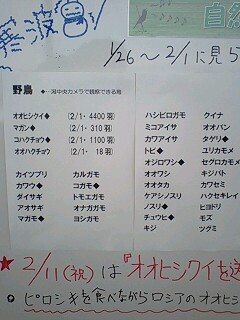 寒波
自然
1/26〜2/1に見ら
野鳥 ◆…国中央カメラで観察できる鳥
オオヒシクイ◆ (2/1・4400羽)
マガン◆ (2/1・310羽)
コハクチョウ◆ (2/1・1100羽)
オオハクチョウ (2/1・18羽)
カイツブリ カルガモ
カワウ◆ コガモ◆
ダイサギ トモエガモ
アオサギ オナガガモ
マガモ◆ ヨシガモ
ハシビロガモ クイナ
ミコアイサ オオバン
カワアイサ タゲリ◆
トビ◆ ユリカモメ
オジロワシ◆ セグロカモメ
オオワシ キジバト
オオタカ カワセミ
ケアシノスリ ハクセキレイ
ノスリ◆ ヒヨドリ
チュウヒ◆ モズ
キジ ツグミ
★2/11(祝)は『オオヒシクイを送
ピロシキを食べながらロシアのオオヒシ